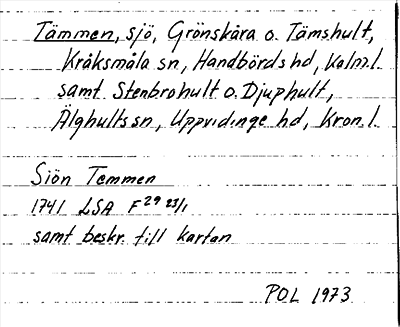 Tämmen, sjö, Grönskåra o. Tämshult,
Kråksmåla sn, Handbörds hd, Kalm.l.
samt Stenbrohult o. Djuphult,
Älghults sn, Uppvidinge hd, Kron.l.
Siön Temmen
1741 LSA F29 23/1
samt beskr. till kartan
POL 1973